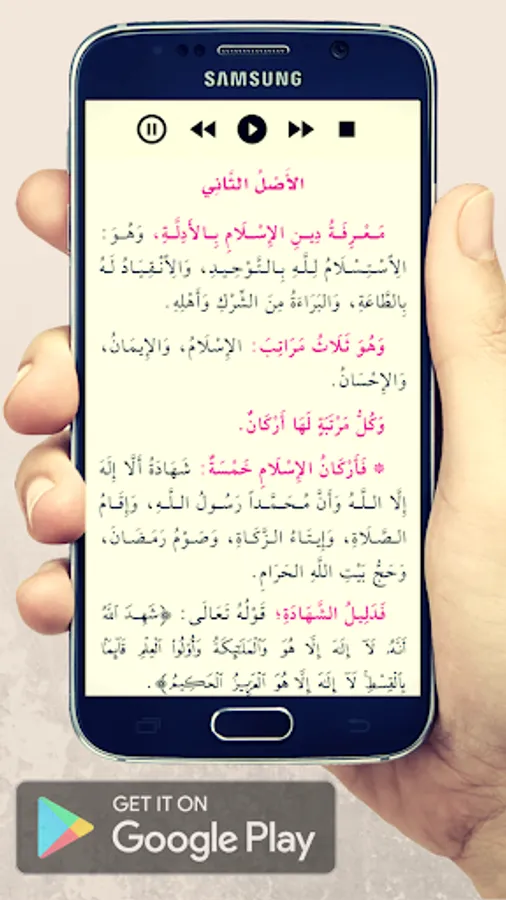 SAMSUNG
الأَصْلُ الثَّانِي
مَـعْـرِفَـةُ دِيـنِ الإِسْـلَامِ بِـالأَدِلَّـةِ، وَهُـوَ:
الِاسْـتِـسْـلَامُ لِـلَّـهِ بِـالـتَّـوْحِـيـدِ، وَالِانْـقِـيَـادُ لَـهُ
بِالطَّاعَةِ، وَالبَرَاءَةُ مِنَ الشِّرْكِ وَأَهْلِهِ.
وَهُوَ ثَلَاثُ مَرَاتِبَ: الإِسْلَامُ، وَالإِيمَانُ،
وَالإِحْسَانُ.
وَكُلُّ مَرْتَبَةٍ لَهَا أَرْكَانٌ.
* فَأَرْكَانُ الإِسْلَامِ خَمْسَةٌ: شَهَادَةُ أَلَّا إِلَهَ
إِلَّا الـلَّـهُ وَأَنَّ مُـحَـمَّـداً رَسُـولُ الـلَّـهِ، وَإِقَـامُ
الـصَّـلَاةِ، وَإِيـتَـاءُ الـزَّكَـاةِ، وَصَـوْمُ رَمَـضَـانَ،
وَحَجُّ بَيْتِ اللَّهِ الحَرَامِ.
فَدَلِيلُ الشَّهَادَةِ؛ قَوْلُهُ تَعَالَى: ﴿شَهِدَ اللَّهُ
أَنَّهُ لَآ إِلَهَ إِلَّا هُوَ وَٱلْمَلَٰٓئِكَةُ وَأُو۟لُوا۟ ٱلْعِلْمِ قَآئِمًۢا
بِٱلْقِسْطِۚ لَآ إِلَهَ إِلَّا هُوَ ٱلْعَزِيزُ ٱلْحَكِيمُ﴾.
GET IT ON
Google Play